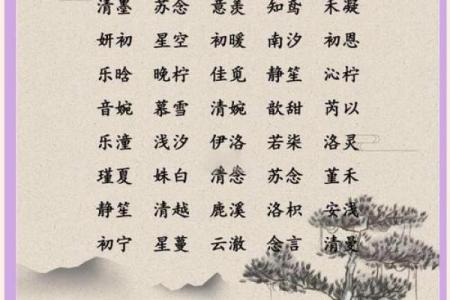 清墨 苏念 意羡 知鸢 禾凝
妍初 星空 初暖 南汐 初恩
乐晗 晚柠 佳觅 静笙 沁柠
音婉 慕雪 清婉 歆甜 芮以
乐潼 浅汐 伊洛 若柒 洛灵
瑾夏 姝白 清悠 苏念 堇禾
静笙 清越 鹿溪 洛枳 安浅
初宁 星蔓 云澈 念言 清曼